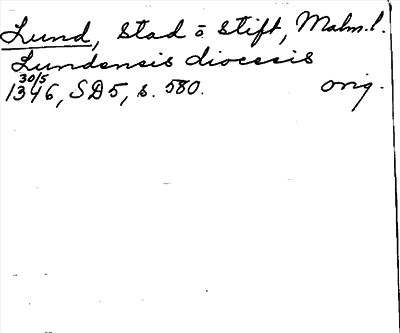 Lund, Stad o Stift, Malm.l.
Lundensis diocesis
30/5
1346, SD5, s. 580. orig.